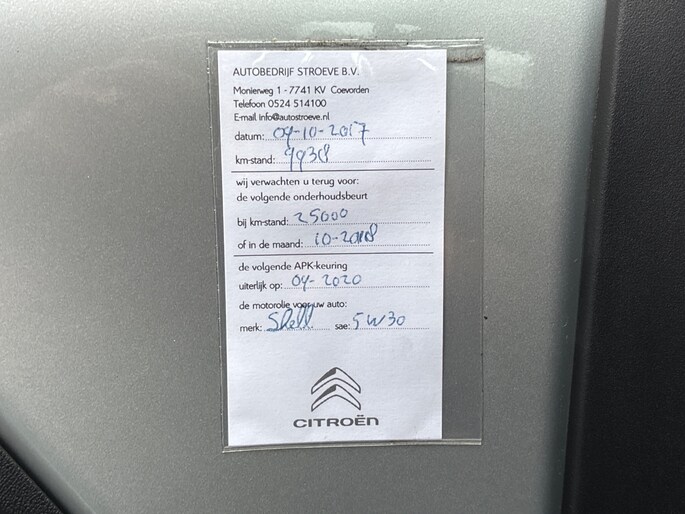 AUTOBEDRIJF STROEVE B.V.
Monierweg 1 - 7741 KV Coevorden
Telefoon 0524 514100
E-mail info@autostroeve.nl
datum: 04-10-2017
km-stand: 9938
wij verwachten u terug voor:
de volgende onderhoudsbeurt
bij km-stand: 25000
of in de maand: 10-2018
de volgende APK-keuring
uiterlijk op: 04-2020
de motorolie voor uw auto:
merk: Shell sae: 5W30
CITROËN